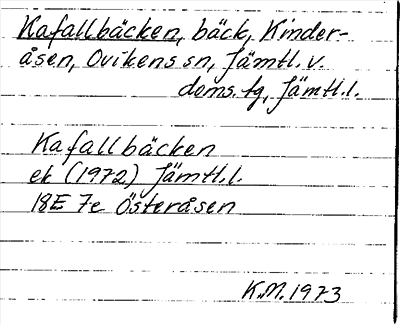 Kafallbäcken, bäck, Kinder-
åsen, Ovikens sn, Jämtl. v.
doms. tg, Jämtl. l.
Kafallbäcken
ek (1972) Jämtl. l.
18E 7e Österåsen
K.M. 1973